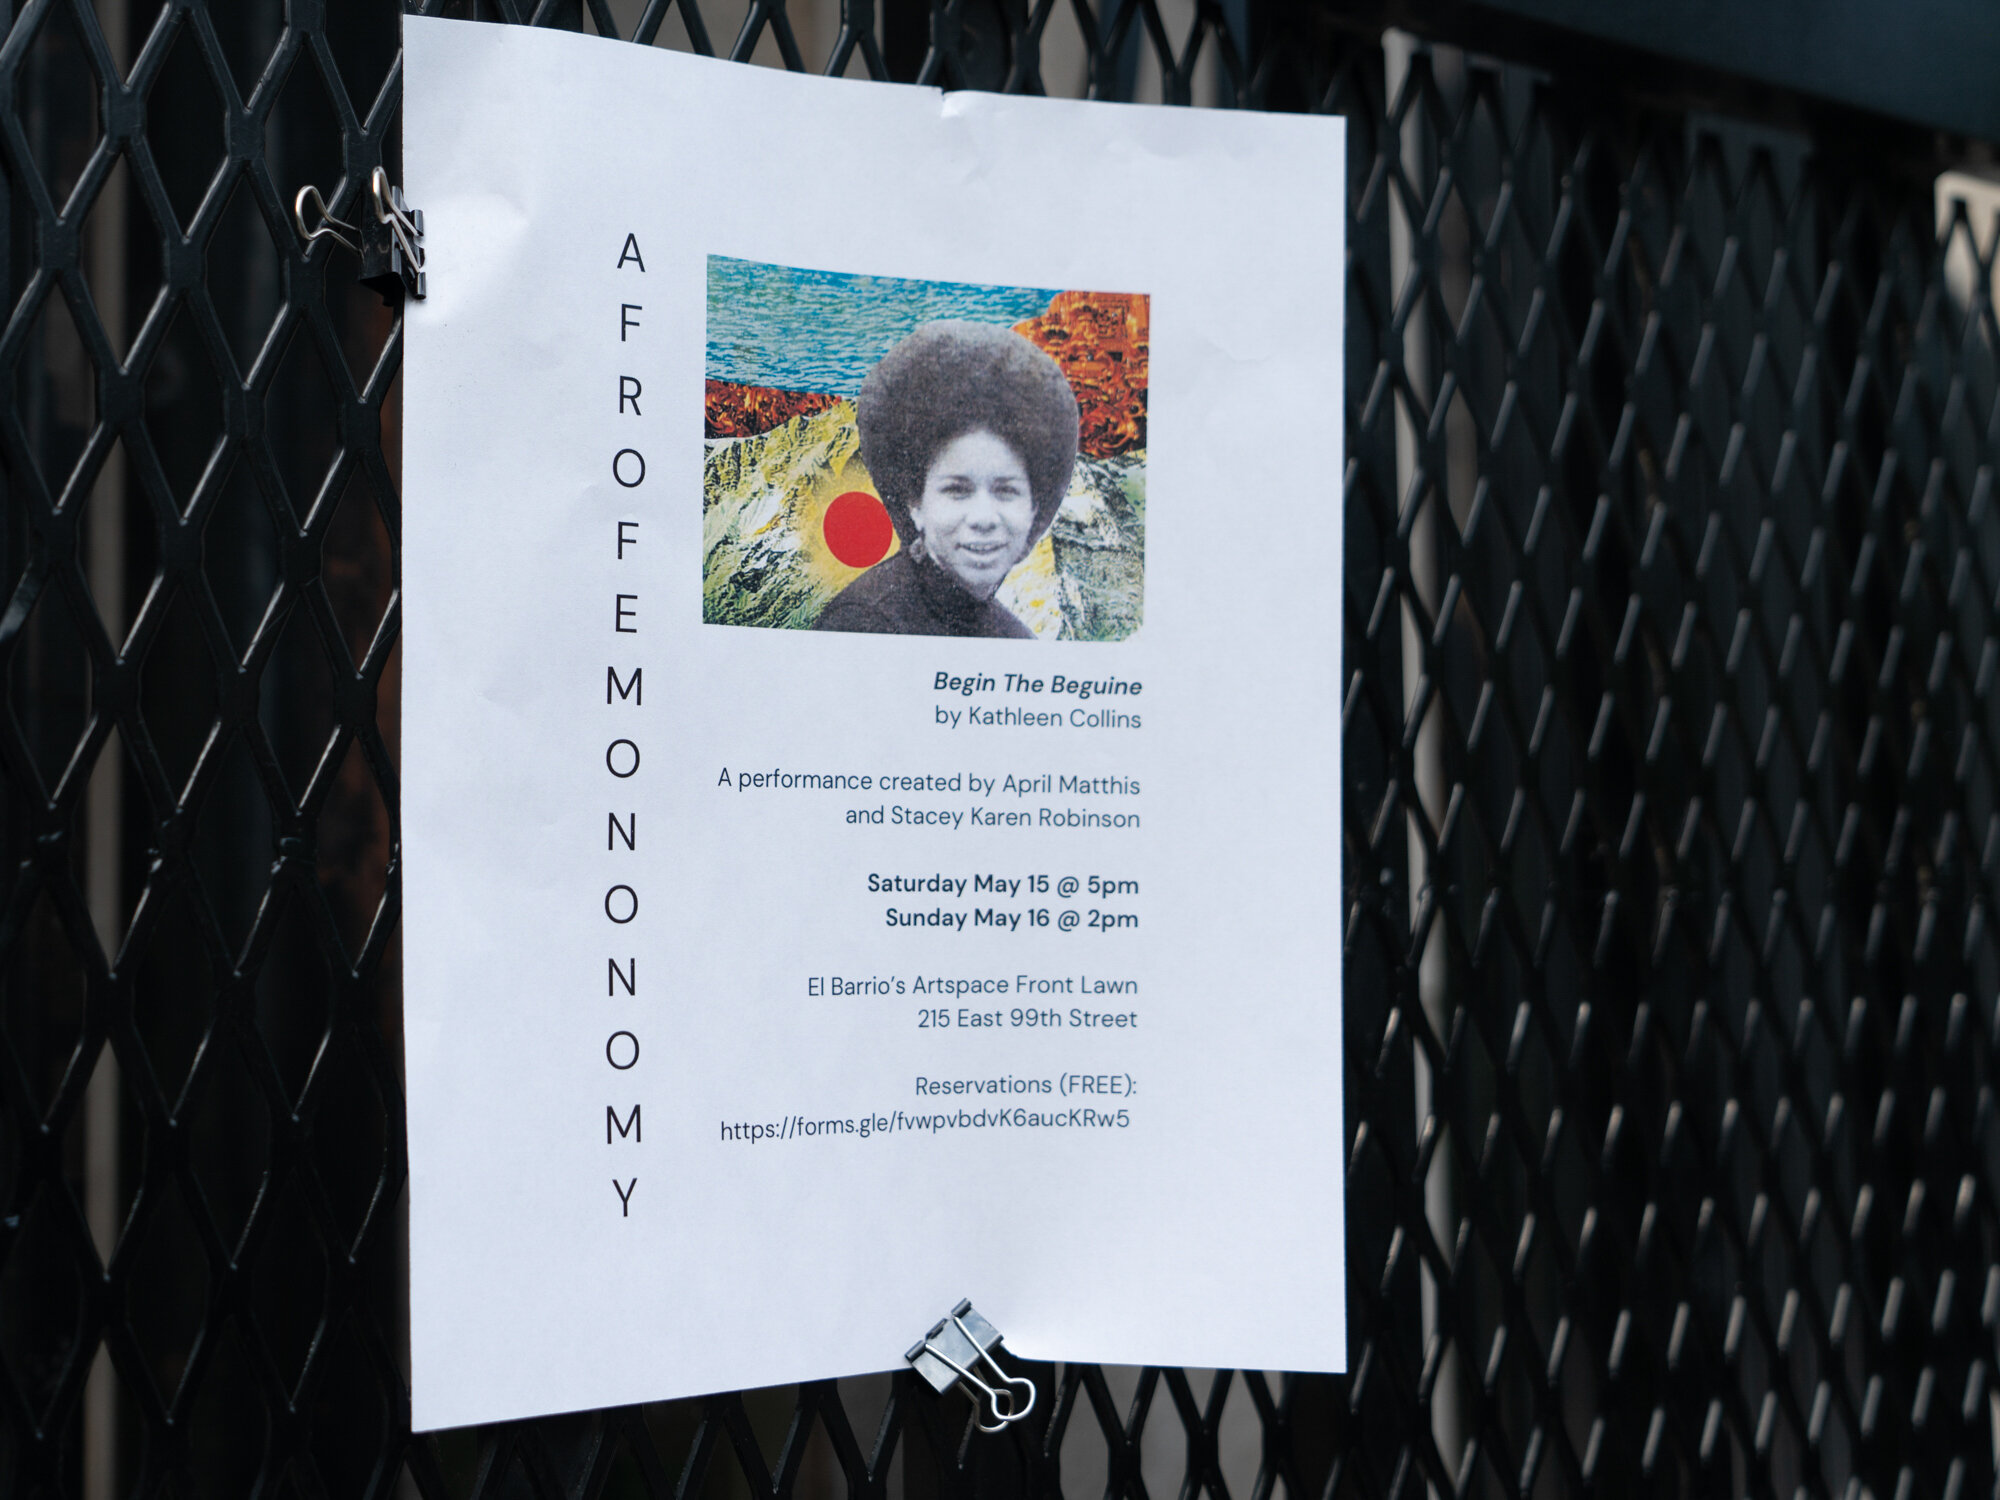 AFROFEMONONOMY
Begin The Beguine
by Kathleen Collins
A performance created by April Matthis
and Stacey Karen Robinson
Saturday May 15 @ 5pm
Sunday May 16 @ 2pm
El Barrio's Artspace Front Lawn
215 East 99th Street
Reservations (FREE):
https://forms.gle/fvwpvbdvK6aucKRw5